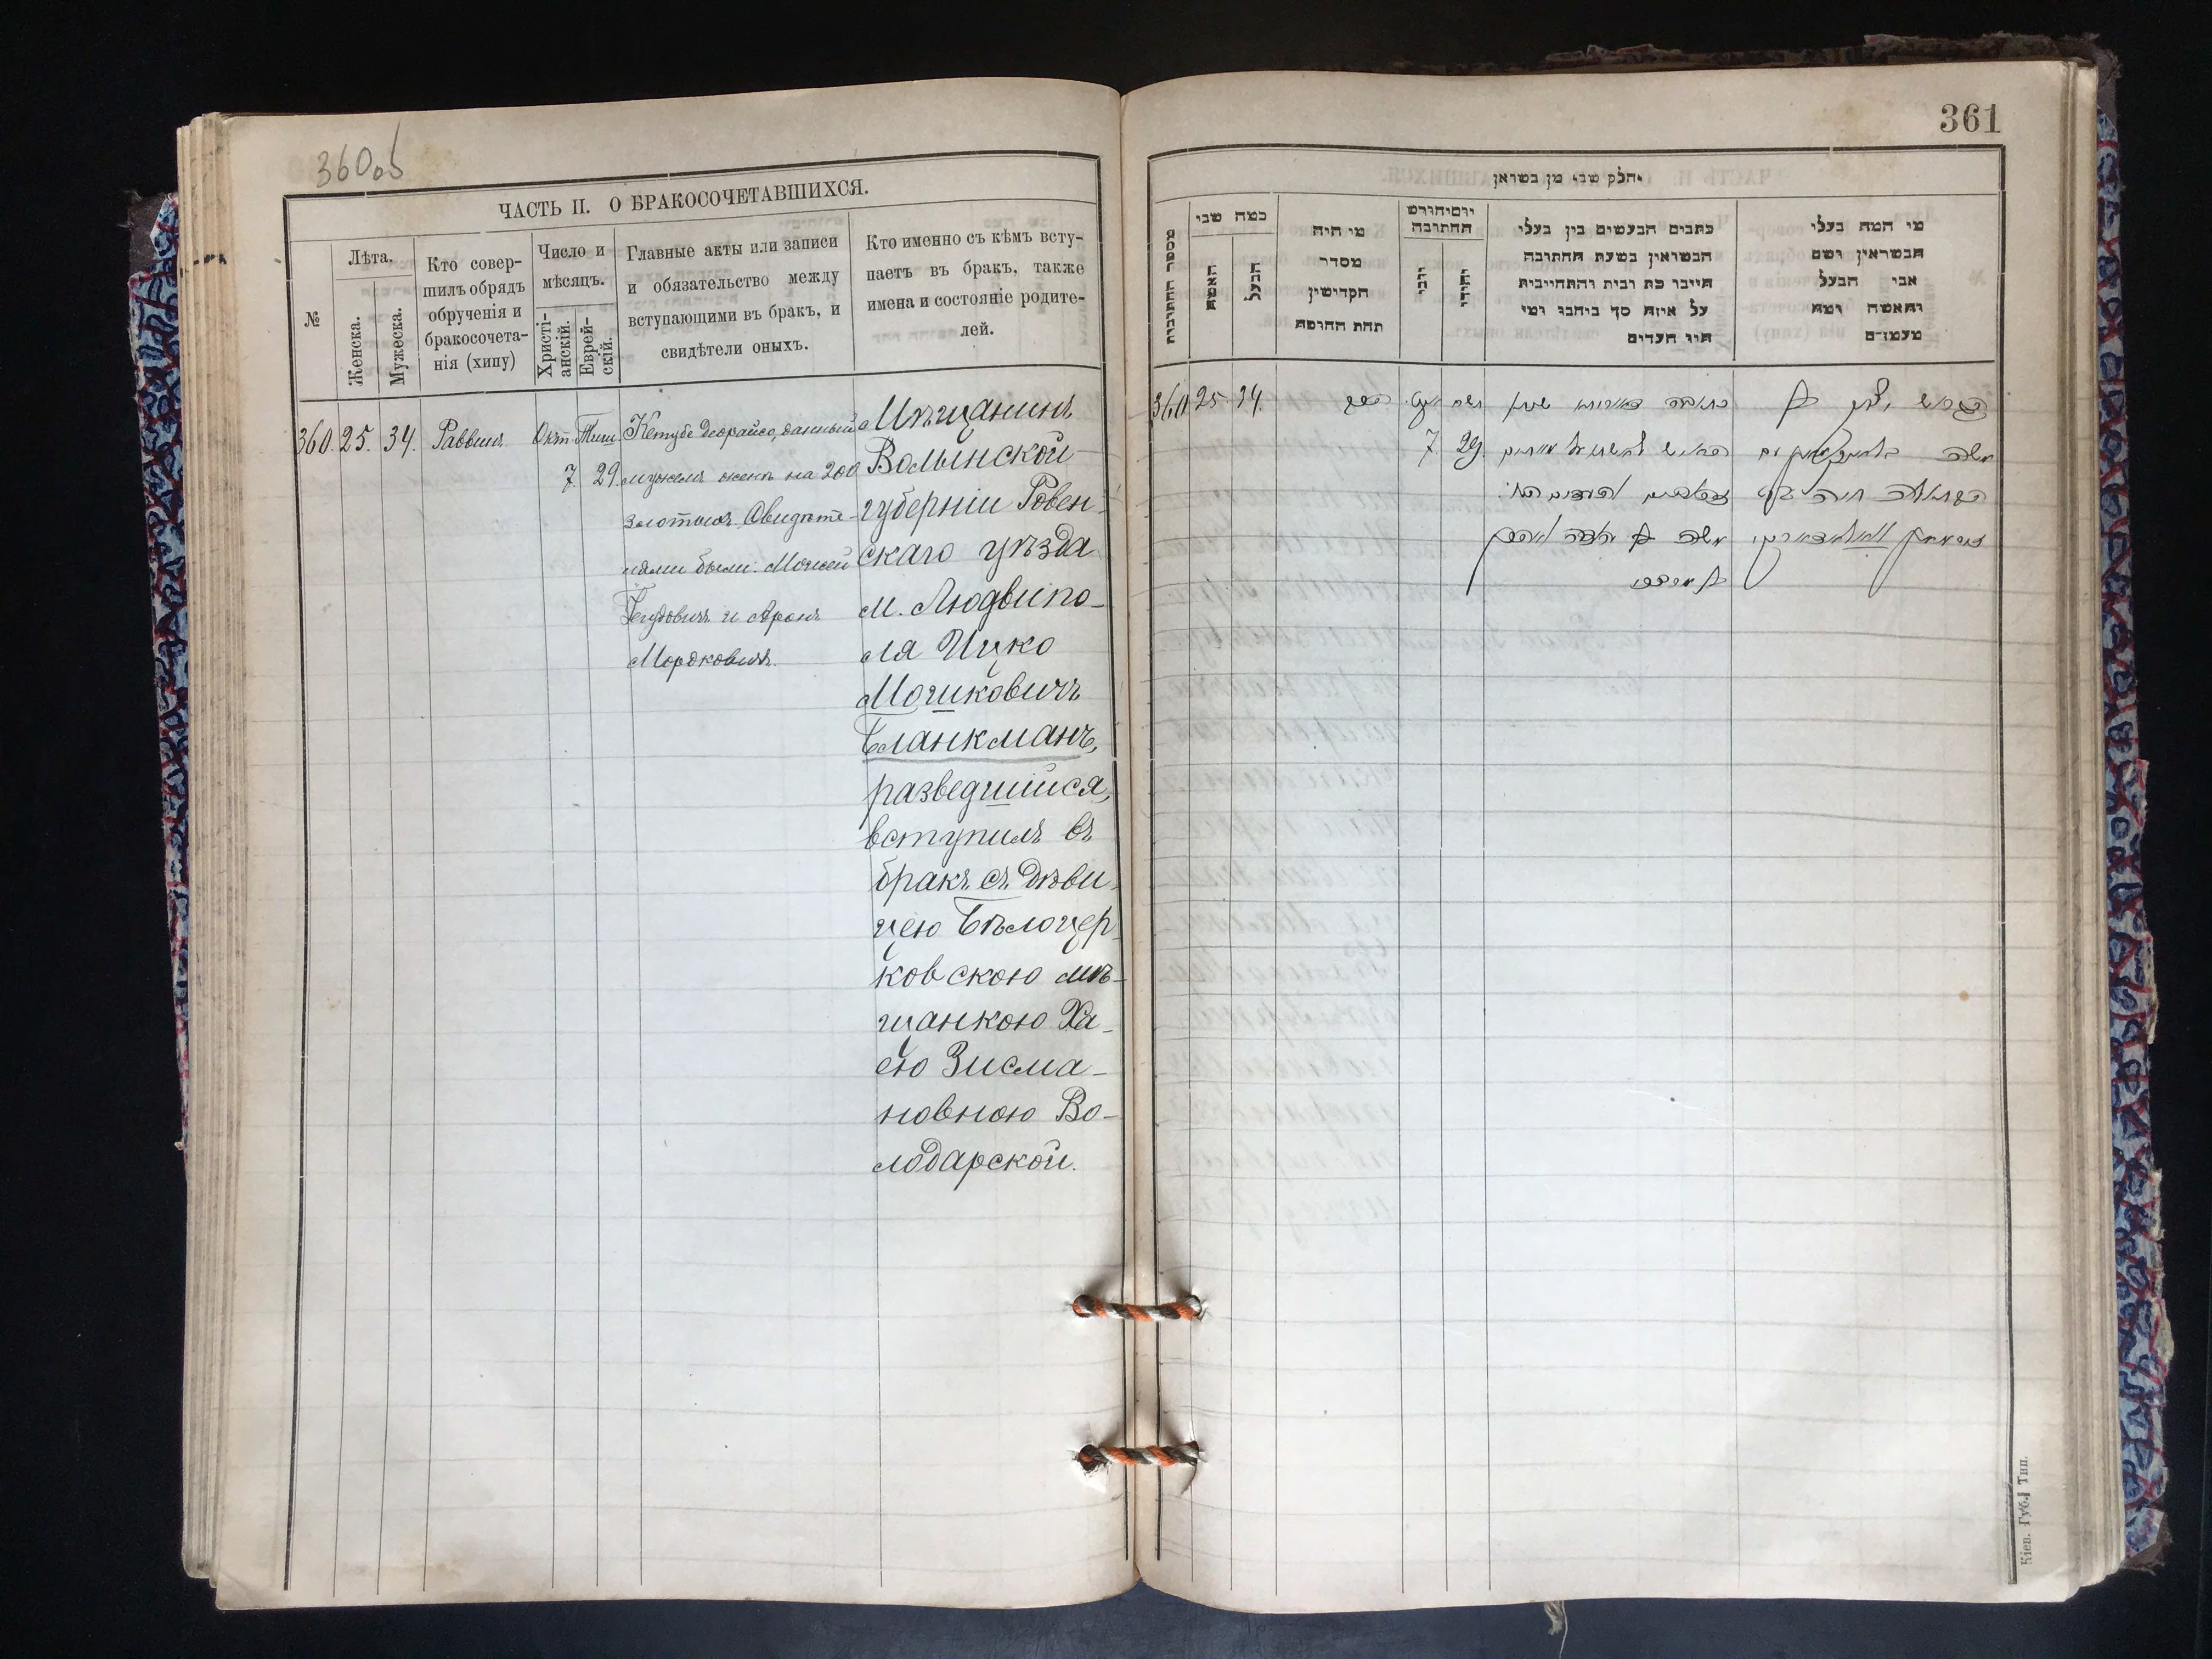 360об
ЧАСТЬ II. О БРАКОСОЧЕТАВШИХСЯ.
№
Лѣта.
Женска.
Мужеска.
Кто совер-
шилъ обрядъ
обрученія и
бракосочета-
нія (хипу)
Число и
мѣсяцъ.
Христі-
анскій.
Еврей-
скій.
Главные акты или записи
и обязательство между
вступающими въ бракъ, и
свидѣтели оныхъ.
Кто именно съ кѣмъ всту-
паетъ въ бракъ, также
имена и состояніе родите-
лей.
360. 25. 34. Раввинъ Окт. Тиш.
7. 29.
Кетубе Деорайсо, данный
мужемъ женѣ на 200
золотыхъ. Свидѣте-
лями были: Мошей
Гецovичъ и Аронъ
Мордковичъ.
Мѣщанинъ
Волынской
губерніи Ровен-
скаго уѣзда
м. Людвипо-
ля Ицко
Мошковичъ
Бланкманъ,
разведшійся,
вступилъ въ
бракъ съ дѣви-
цею Бѣлоцер-
ковскою мѣ-
щанкою Ха-
ею Зисма-
новною Во-
лодарской.
361
חלק שני מן נשואין
מספר החתונה
כמה שני
האשה
הבעל
מי היה
מסדר
הקדושין
תחת החופה
יום וחודש
החתונה
נוצרי
יהודי
כתבים הנעשים בין בעלי
הנשואין בשעת החתונה
חייבו כת ובית והתחייבות
על איזה סך ביחבו ומי
היו העדים
מי המה בעלי
הנשואין ושם
אבי הבעל
והאשה ומה
מעמדם
360 25 34.
7. 29.
הגרוש יצחק בן
משה בלאנקמאן עם
הבתולה חיה בת
זיסמאן וואלאדארסקי
כתובה דאורייתא
משה בן
בן מרדכי
Кіев. Губ. Тип.